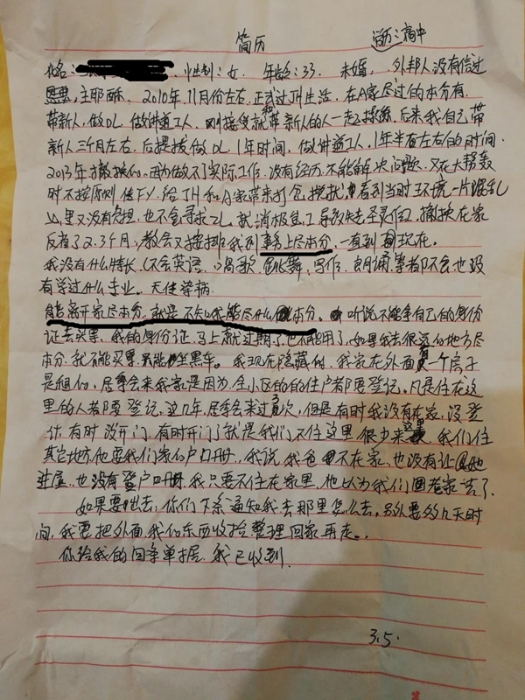 简历
学历:高中
姓名: 性别:女 年龄:33 未婚, 外邦人没有信过
恩典,主耶稣. 2010年11月份左右正式过JH生活. 在A家尽过的本分有,
带新人, 做DL 做讲道工人, 刚接受就和带新人的一起操练, 后来我自己带
新人三个月左右, 后提拔做DL 1年时间, 做讲道工人, 1年半左右的时间.
2013年撤换的, 因为做不了实际工作, 没有经历 不能解决问题, 又在大帮轰
时不按原则传FY, 给JH和A家带来打岔, 搅扰, 看到当时环境一片混乱
心里又没有负担, 也不会寻求ZL, 就消极怠工导致失去圣灵作工, 撤换在家
反省了2.3个月, 教会又安排我到事务上尽本分, 一直到现在.
我没有什么特长, 不会英语, 唱歌 跳舞, 写作, 朗诵等都不会也没
有学过什么专业, 无任学柄
能离开家尽本分, 就是不知我能尽什么本分. 听说不能拿自己的身份
证去买票, 我的身份证马上就过期了, 也不能用了, 如果我去很远的地方尽
本分, 我不能买票只能坐黑车. 我现在隐藏的, 我家在外面有一个房子
是租的, 居委会来我家是因为全小区的的住户都要登记, 凡是住在这
里的人都要登记, 这几年, 居委会来过3次, 但是有时我没有在家, 没登
计, 有时没开门, 有时开门了就是我们不住这里很少来这里, 我们住
其它地方 他要我们家的户口册, 我说我爸不在家, 也没有让她
进屋, 也没有登户口册, 我只要不住在家里, 他以为我们回老家去了.
如果要出去, 你们下条通知我去那里怎么去, 另外要约几天时
间, 我要把外面我的东西收拾整理回家再走.
你给我的回条单据, 我已收到.
3.5.